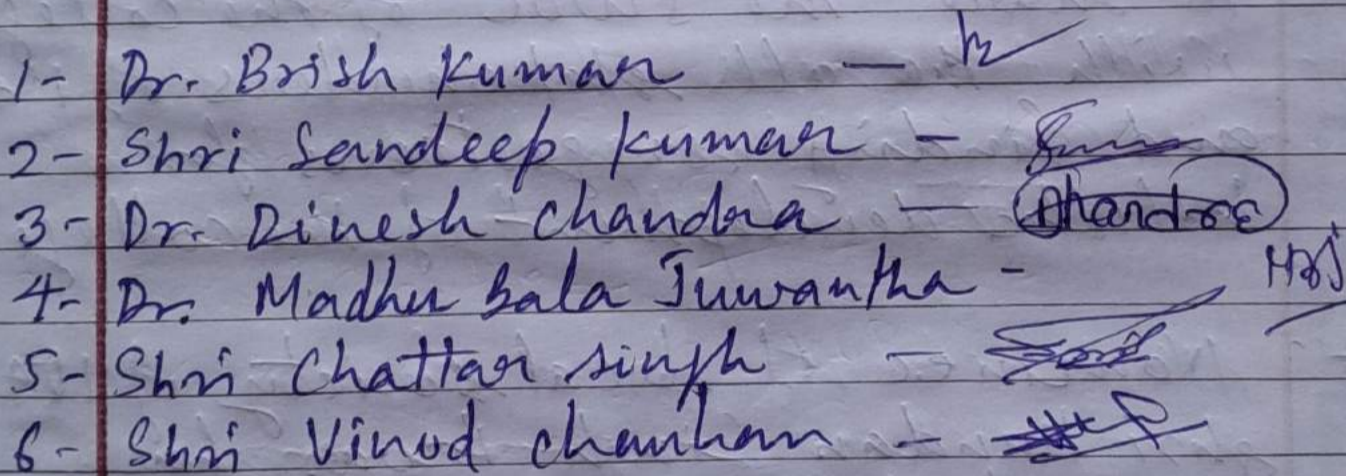 1- Dr. Brish Kumar -
2- Shri Sandeep Kumar -
3- Dr. Dinesh Chandra - Chandra
4- Dr. Madhu bala Juwantha -
5- Shri Chattar singh -
6- Shri Vinod chauhan -